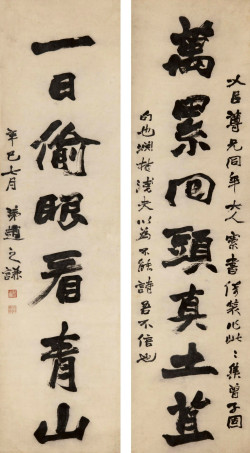 以臣尊兄同年大人索書
此集曾子固
萬累回頭真土苴
句也淵材淺夫以為不能詩吾不信也
一日偷眼看青山
辛巳七月 弟趙之謙